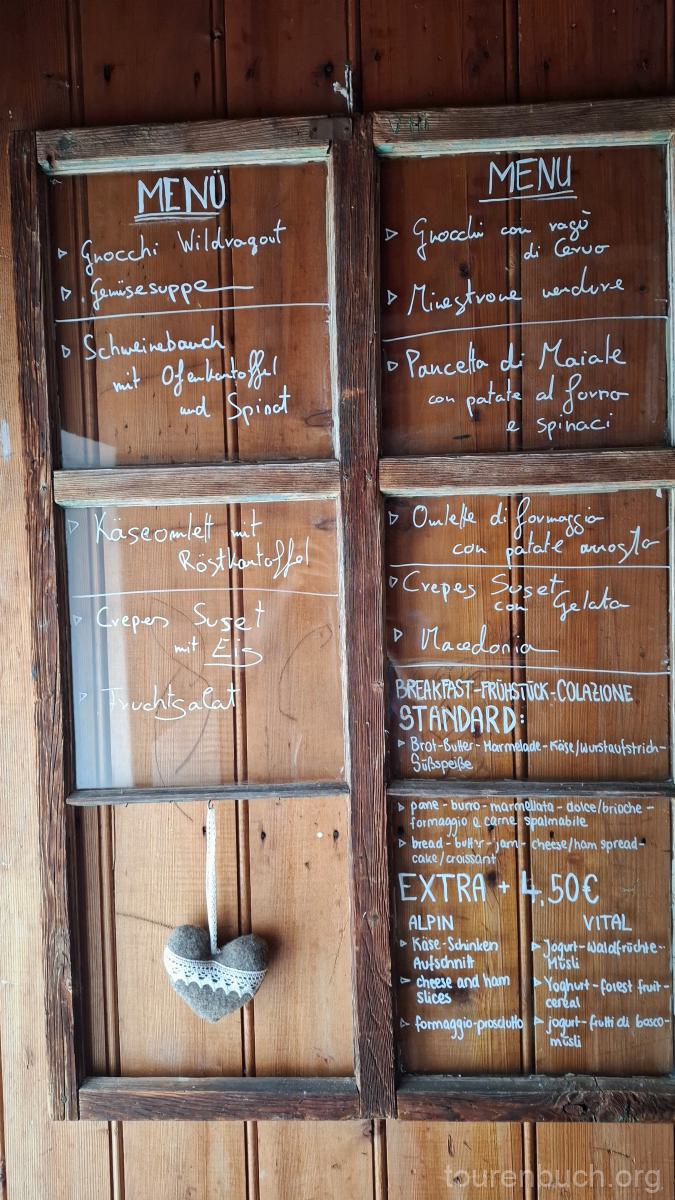 MENÜ
▷ Gnocchi Wildragout
▷ Gemüsesuppe
▷ Schweinebauch
mit Ofenkartoffel
und Spinat
▷ Käseomlett mit
Röstkartoffel
▷ Crepes Suset
mit Eis
▷ Fruchtsalat
MENU
▷ Gnocchi con ragù
di Cervo
▷ Minestrone verdure
▷ Pancetta di Maiale
con patate al forno
e spinaci
▷ Omlette di formaggio
con patate arrosto
▷ Crepes Suset
con Gelato
▷ Macedonia
BREAKFAST-FRÜHSTÜCK-COLAZIONE
STANDARD:
▷ Brot-Butter-Marmelade-Käse/Wurstaufstrich-
Süßspeiße
▷ pane-burro-marmellata-dolce/brioche-
formaggio e carne spalmabile
▷ bread-butter-jam-cheese/ham spread-
cake/croissant
EXTRA + 4,50€
ALPIN
▷ Käse-Schinken
Aufschnitt
▷ cheese and ham
slices
▷ formaggio-prosciutto
VITAL
▷ Jogurt-Waldfrüchte-
Müsli
▷ Yoghurt-forest fruit-
cereal
▷ jogurt-frutti di bosco-
müsli
tourenbuch.org